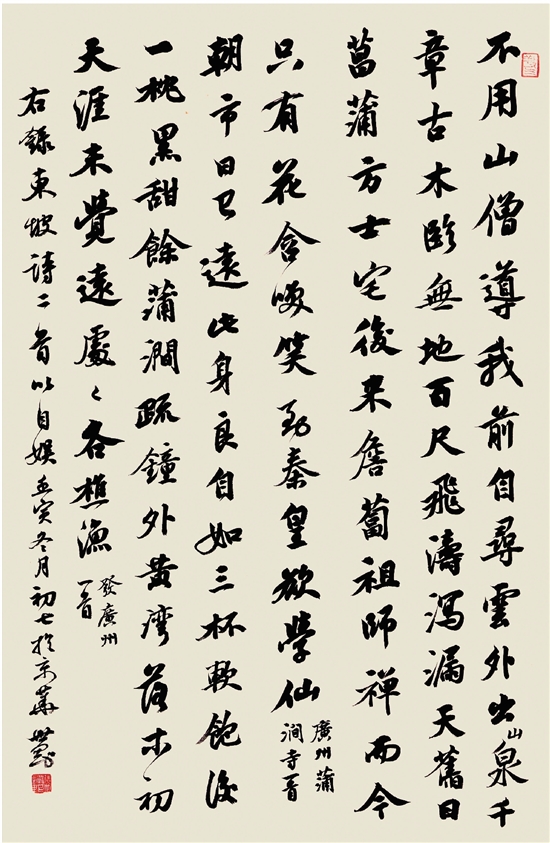 不用山僧導我前自尋雲外出山泉千
章古木臨無地百尺飛濤瀉漏天舊日
菖蒲方士宅後來詹蔔祖師禪而今
只有花含咲笑道秦皇欲學仙
廣州蒲
澗寺一首
朝市日已遠此身良自如三杯軟飽後
一枕黑甜餘蒲澗疏鐘外黃灣落木初
天涯未覺遠處々各樵漁
發廣州
一首
右錄東坡詩二首以自娛壬寅冬月初七於京華